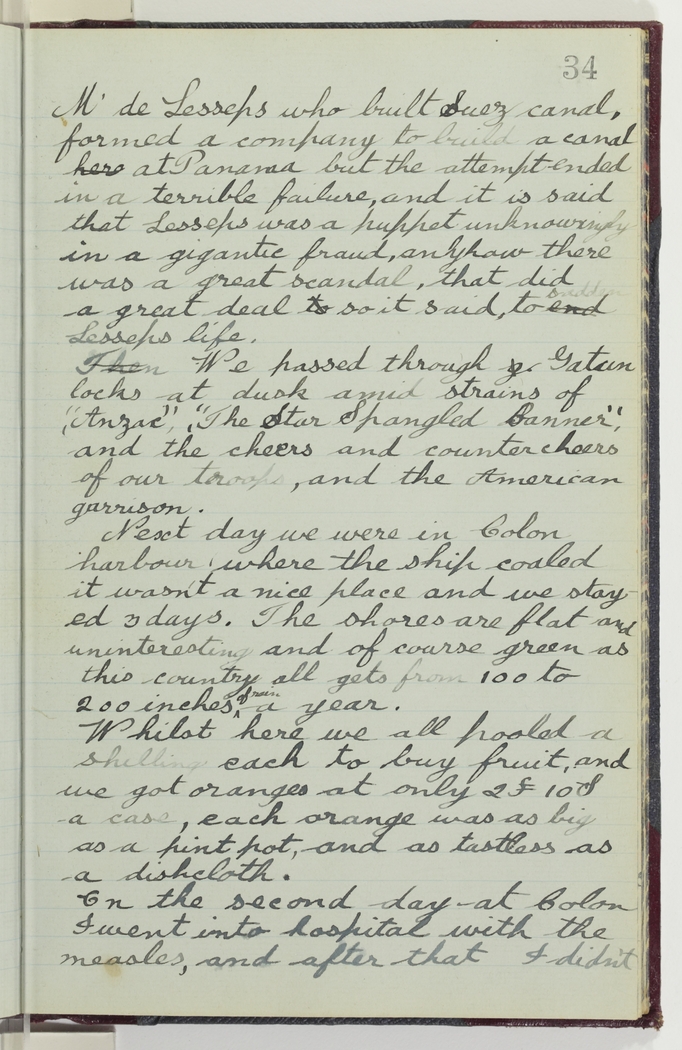 34
Mr de Lesseps who built Suez canal,
formed a company to build a canal
here at Panama but the attempt ended
in a terrible failure, and it is said
that Lesseps was a puppet unknowingly
in a gigantic fraud, anyhow there
was a great scandal, that did
a great deal to so it said, to end sudden
Lesseps life.
Then We passed through ye Gatun
locks at dusk amid strains of
"Anzac", "The Star Spangled Banner",
and the cheers and counter cheers
of our troops, and the American
garrison.
Next day we were in Colon
harbour, where the ship coaled
it wasn't a nice place and we stay-
ed 3 days. The shores are flat and
uninteresting and of course green as
this country all gets from 100 to
200 inches of rain a year.
Whilst here we all pooled a
shilling each to buy fruit, and
we got oranges at only 2$ 10¢
a case, each orange was as big
as a pint pot, and as tastless as
a dishcloth.
On the second day at Colon
I went into hospital with the
measles, and after that I didn't